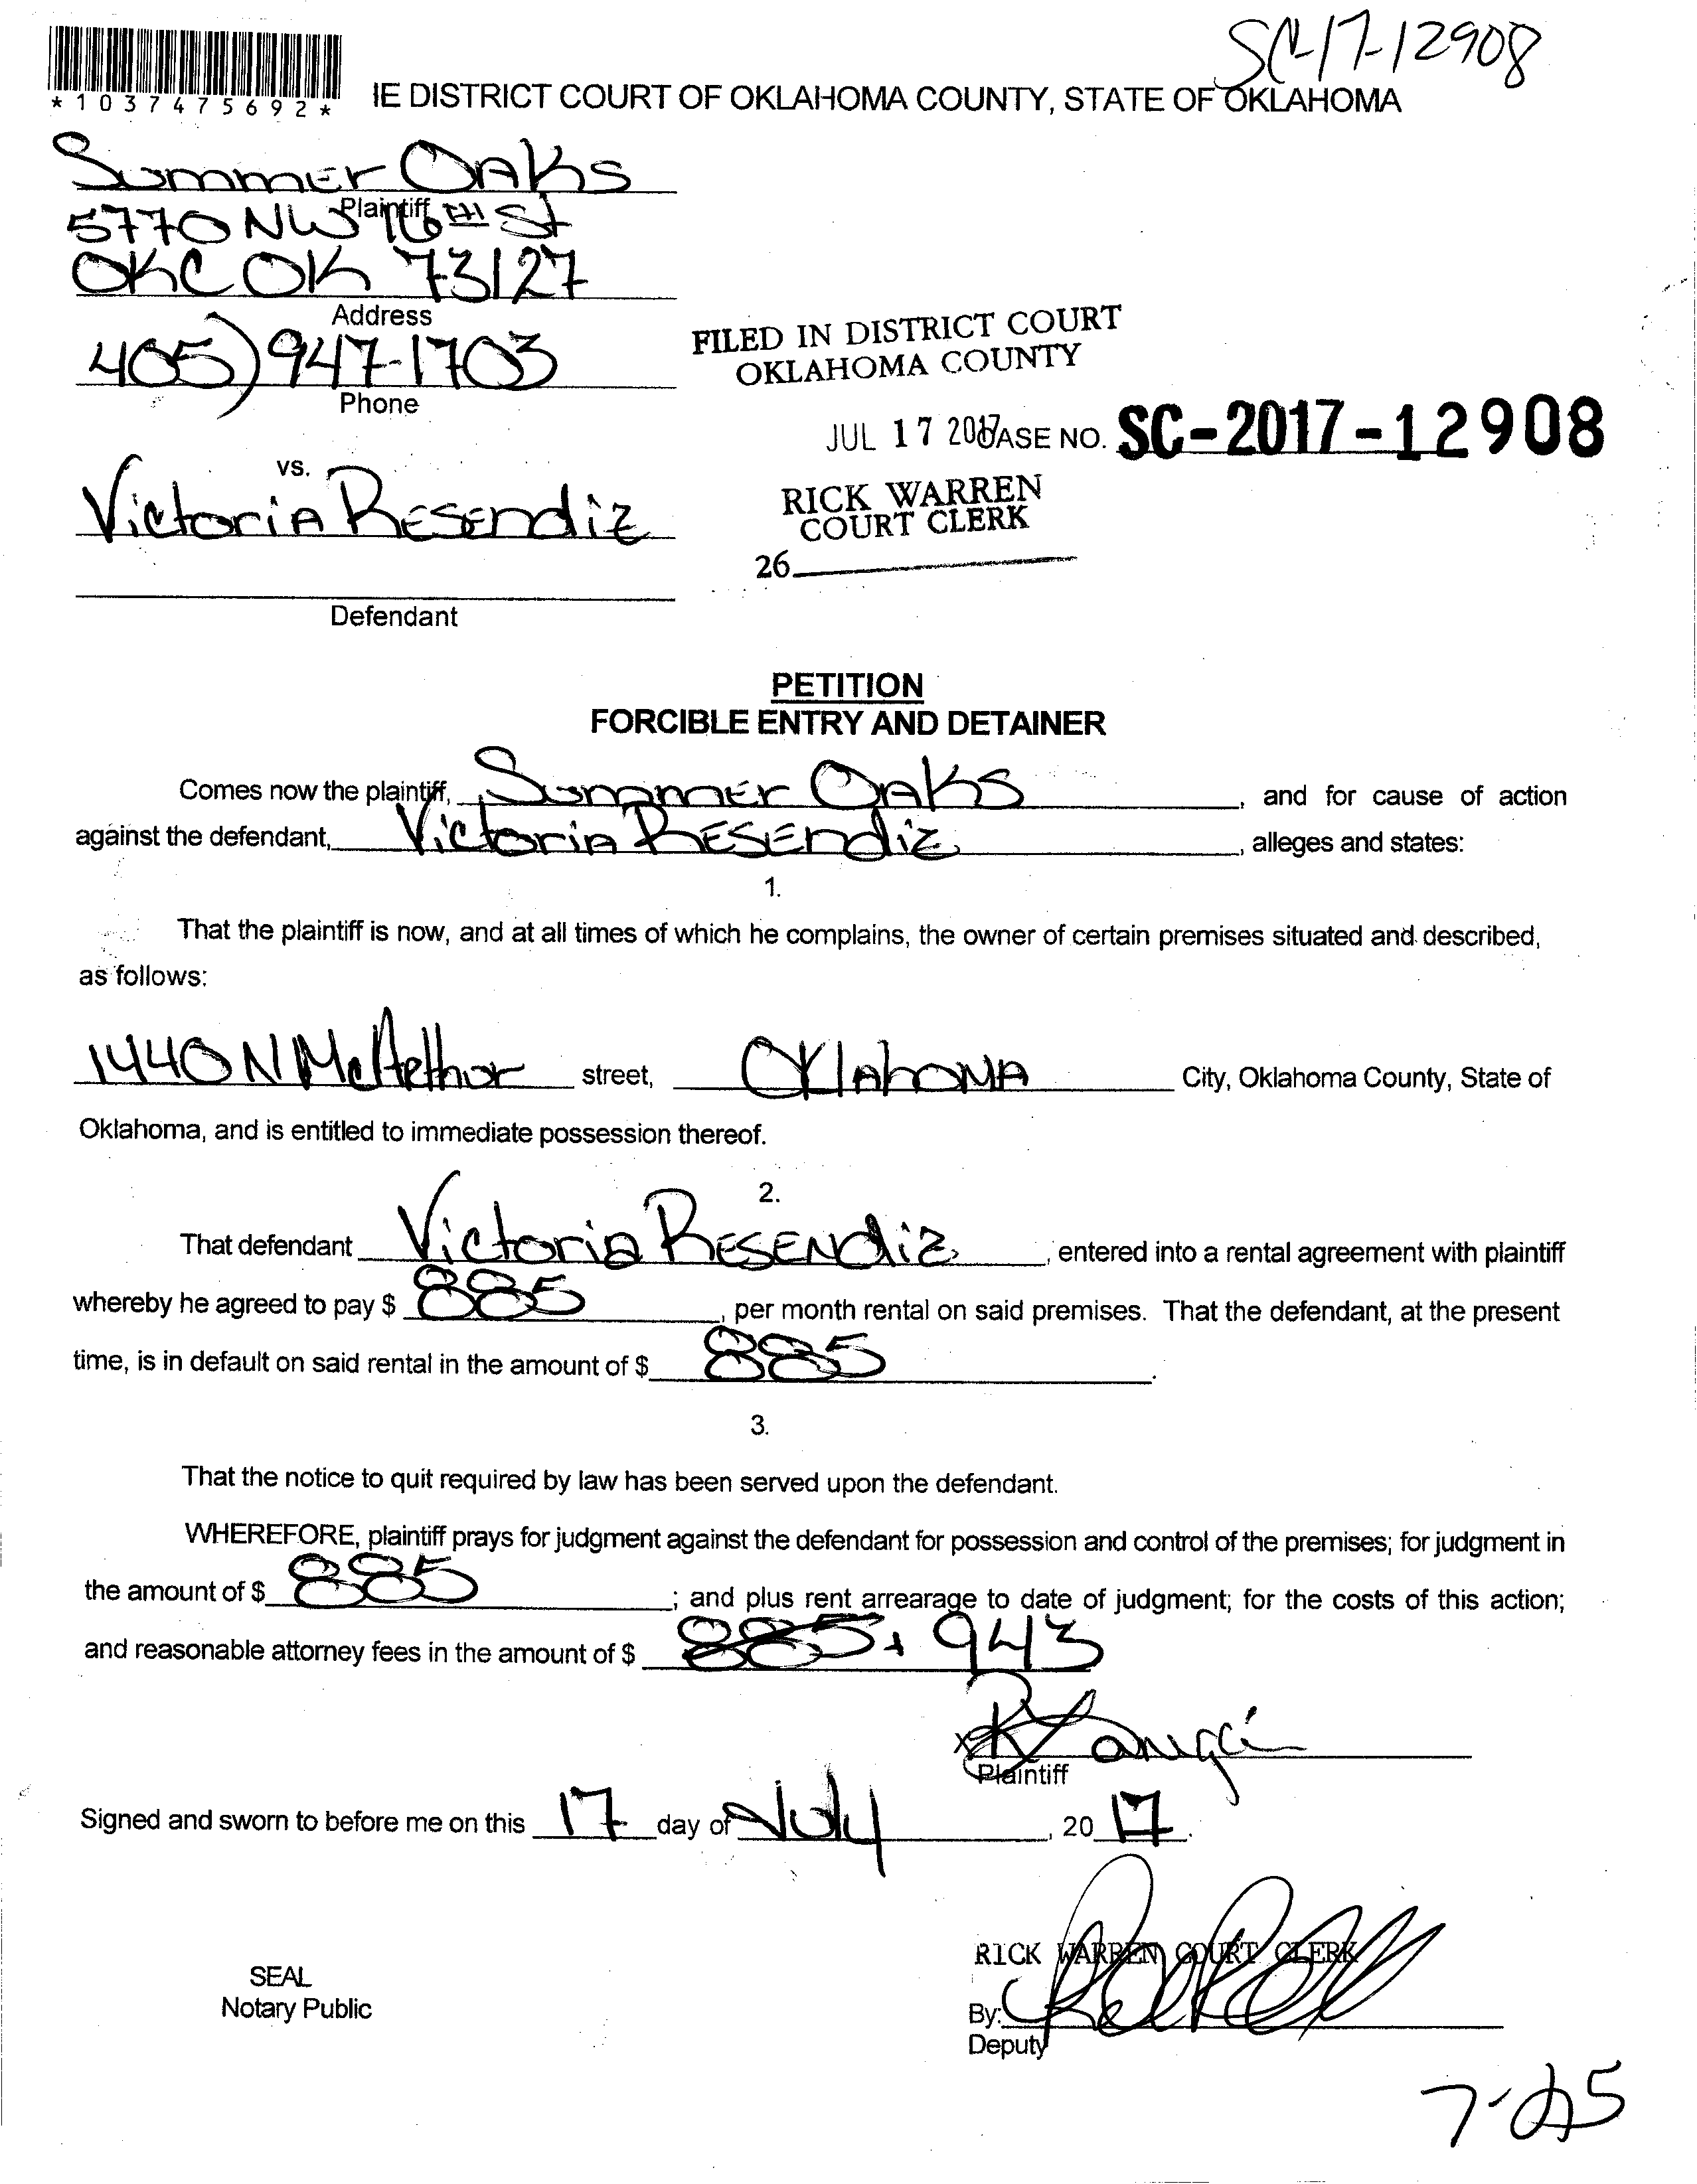 SC-17-12908
*1037475692*
IE DISTRICT COURT OF OKLAHOMA COUNTY, STATE OF OKLAHOMA
Summer Oaks
Plaintiff
5770 NW 16TH St
OKC OK 73127
Address
405) 947-1703
Phone
FILED IN DISTRICT COURT
OKLAHOMA COUNTY
JUL 17 2017 CASE NO. SC-2017-12908
vs.
Victoria Resendiz
RICK WARREN
COURT CLERK
26
Defendant
PETITION
FORCIBLE ENTRY AND DETAINER
Comes now the plaintiff, Summer Oaks, and for cause of action
against the defendant, Victoria Resendiz, alleges and states:
1.
That the plaintiff is now, and at all times of which he complains, the owner of certain premises situated and described,
as follows:
1440 N McArthur street, Oklahoma City, Oklahoma County, State of
Oklahoma, and is entitled to immediate possession thereof.
2.
That defendant Victoria Resendiz, entered into a rental agreement with plaintiff
whereby he agreed to pay $ 885, per month rental on said premises. That the defendant, at the present
time, is in default on said rental in the amount of $ 885.
3.
That the notice to quit required by law has been served upon the defendant.
WHEREFORE, plaintiff prays for judgment against the defendant for possession and control of the premises; for judgment in
the amount of $ 885; and plus rent arrearage to date of judgment; for the costs of this action;
and reasonable attorney fees in the amount of $ 885 + 943
x
Plaintiff
Signed and sworn to before me on this 17 day of July, 20 17.
RICK WARREN COURT CLERK
SEAL
Notary Public
By:
Deputy
7-25